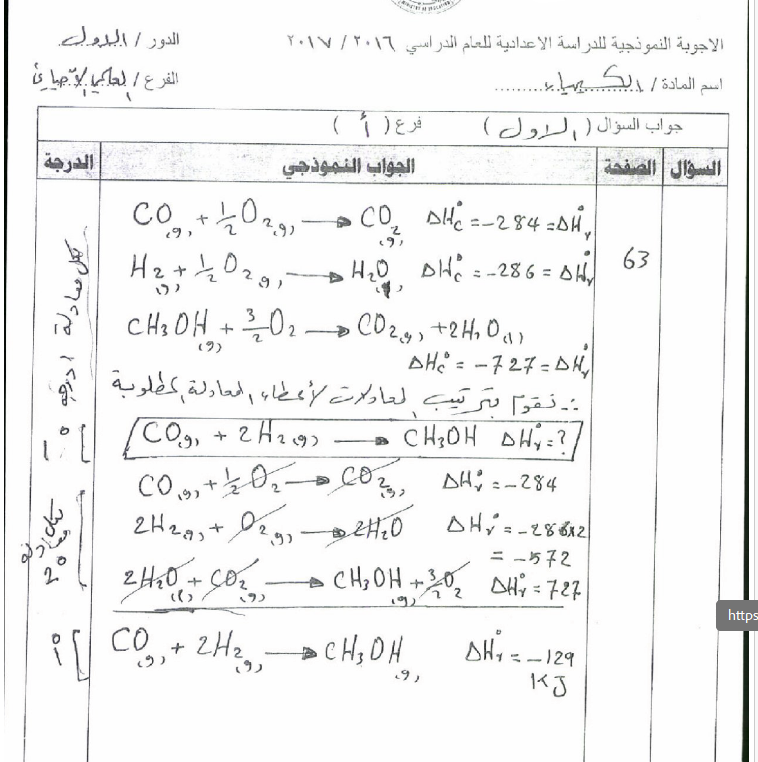 MINISTRY OF EDUCATION
الاجوبة النموذجية للدراسة الاعدادية للعام الدراسي ٢٠١٦ / ٢٠١٧
الدور / الاول
اسم المادة / الكيمياء
الفرع / العلمي الأحيائي
جواب السؤال ( الاول ) فرع ( أ )
السؤال الصفحة الجواب النموذجي الدرجة
63
CO(g) + 1/2 O2(g) → CO2(g) ΔH°c = -284 = ΔH°r
H2(g) + 1/2 O2(g) → H2O(l) ΔH°c = -286 = ΔH°r
CH3OH(g) + 3/2 O2 → CO2(g) + 2H2O(l)
ΔH°c = -727 = ΔH°r
∴ نقوم بترتيب المعادلات لأعطاء المعادلة المطلوبة
CO(g) + 2H2(g) → CH3OH ΔH°r = ?
CO(g) + 1/2 O2 → CO2(g) ΔH°r = -284
2H2(g) + O2(g) → 2H2O ΔH°r = -286x2
= -572
2H2O(l) + CO2(g) → CH3OH(g) + 3/2 O2 ΔH°r = 727
CO(g) + 2H2(g) → CH3OH(g) ΔH°r = -129
KJ
لكل معادلة
https